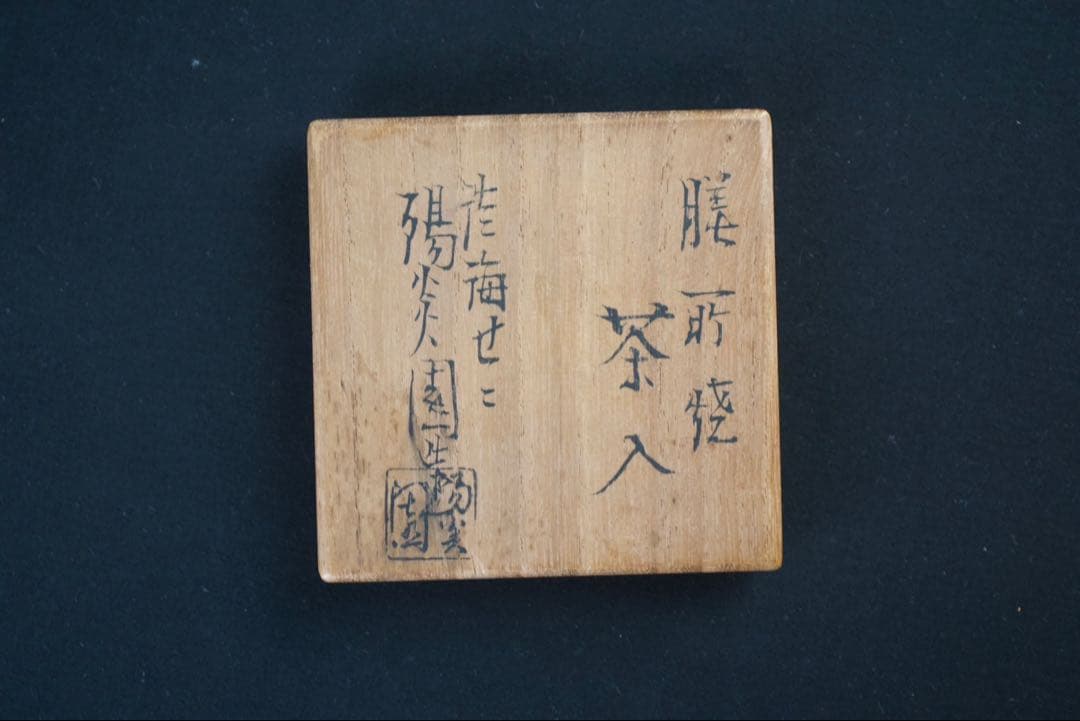 膳所焼
茶入
淡海せゝ
陽炎園造
陽炎
園